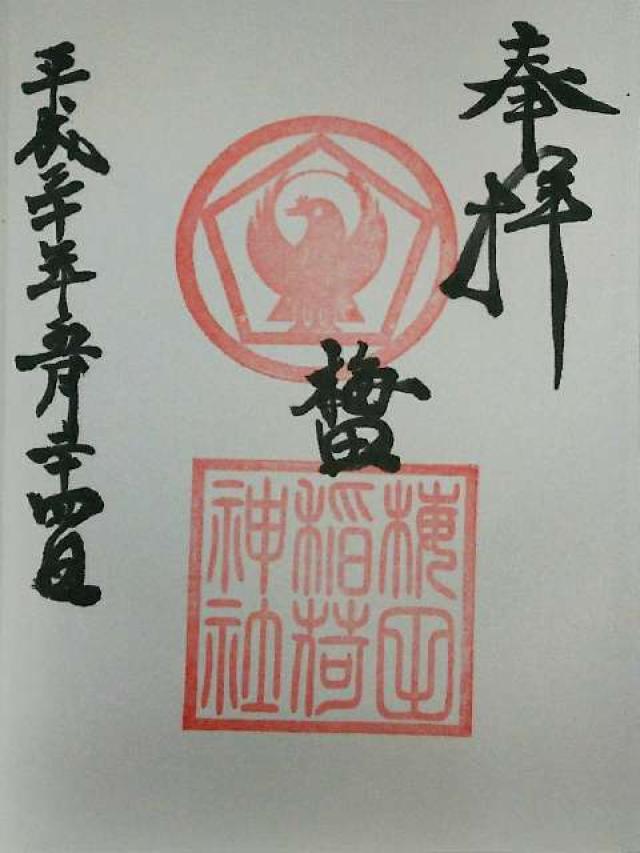 奉拝
梅田
梅田
稲荷
神社
平成三十年五月二十四日